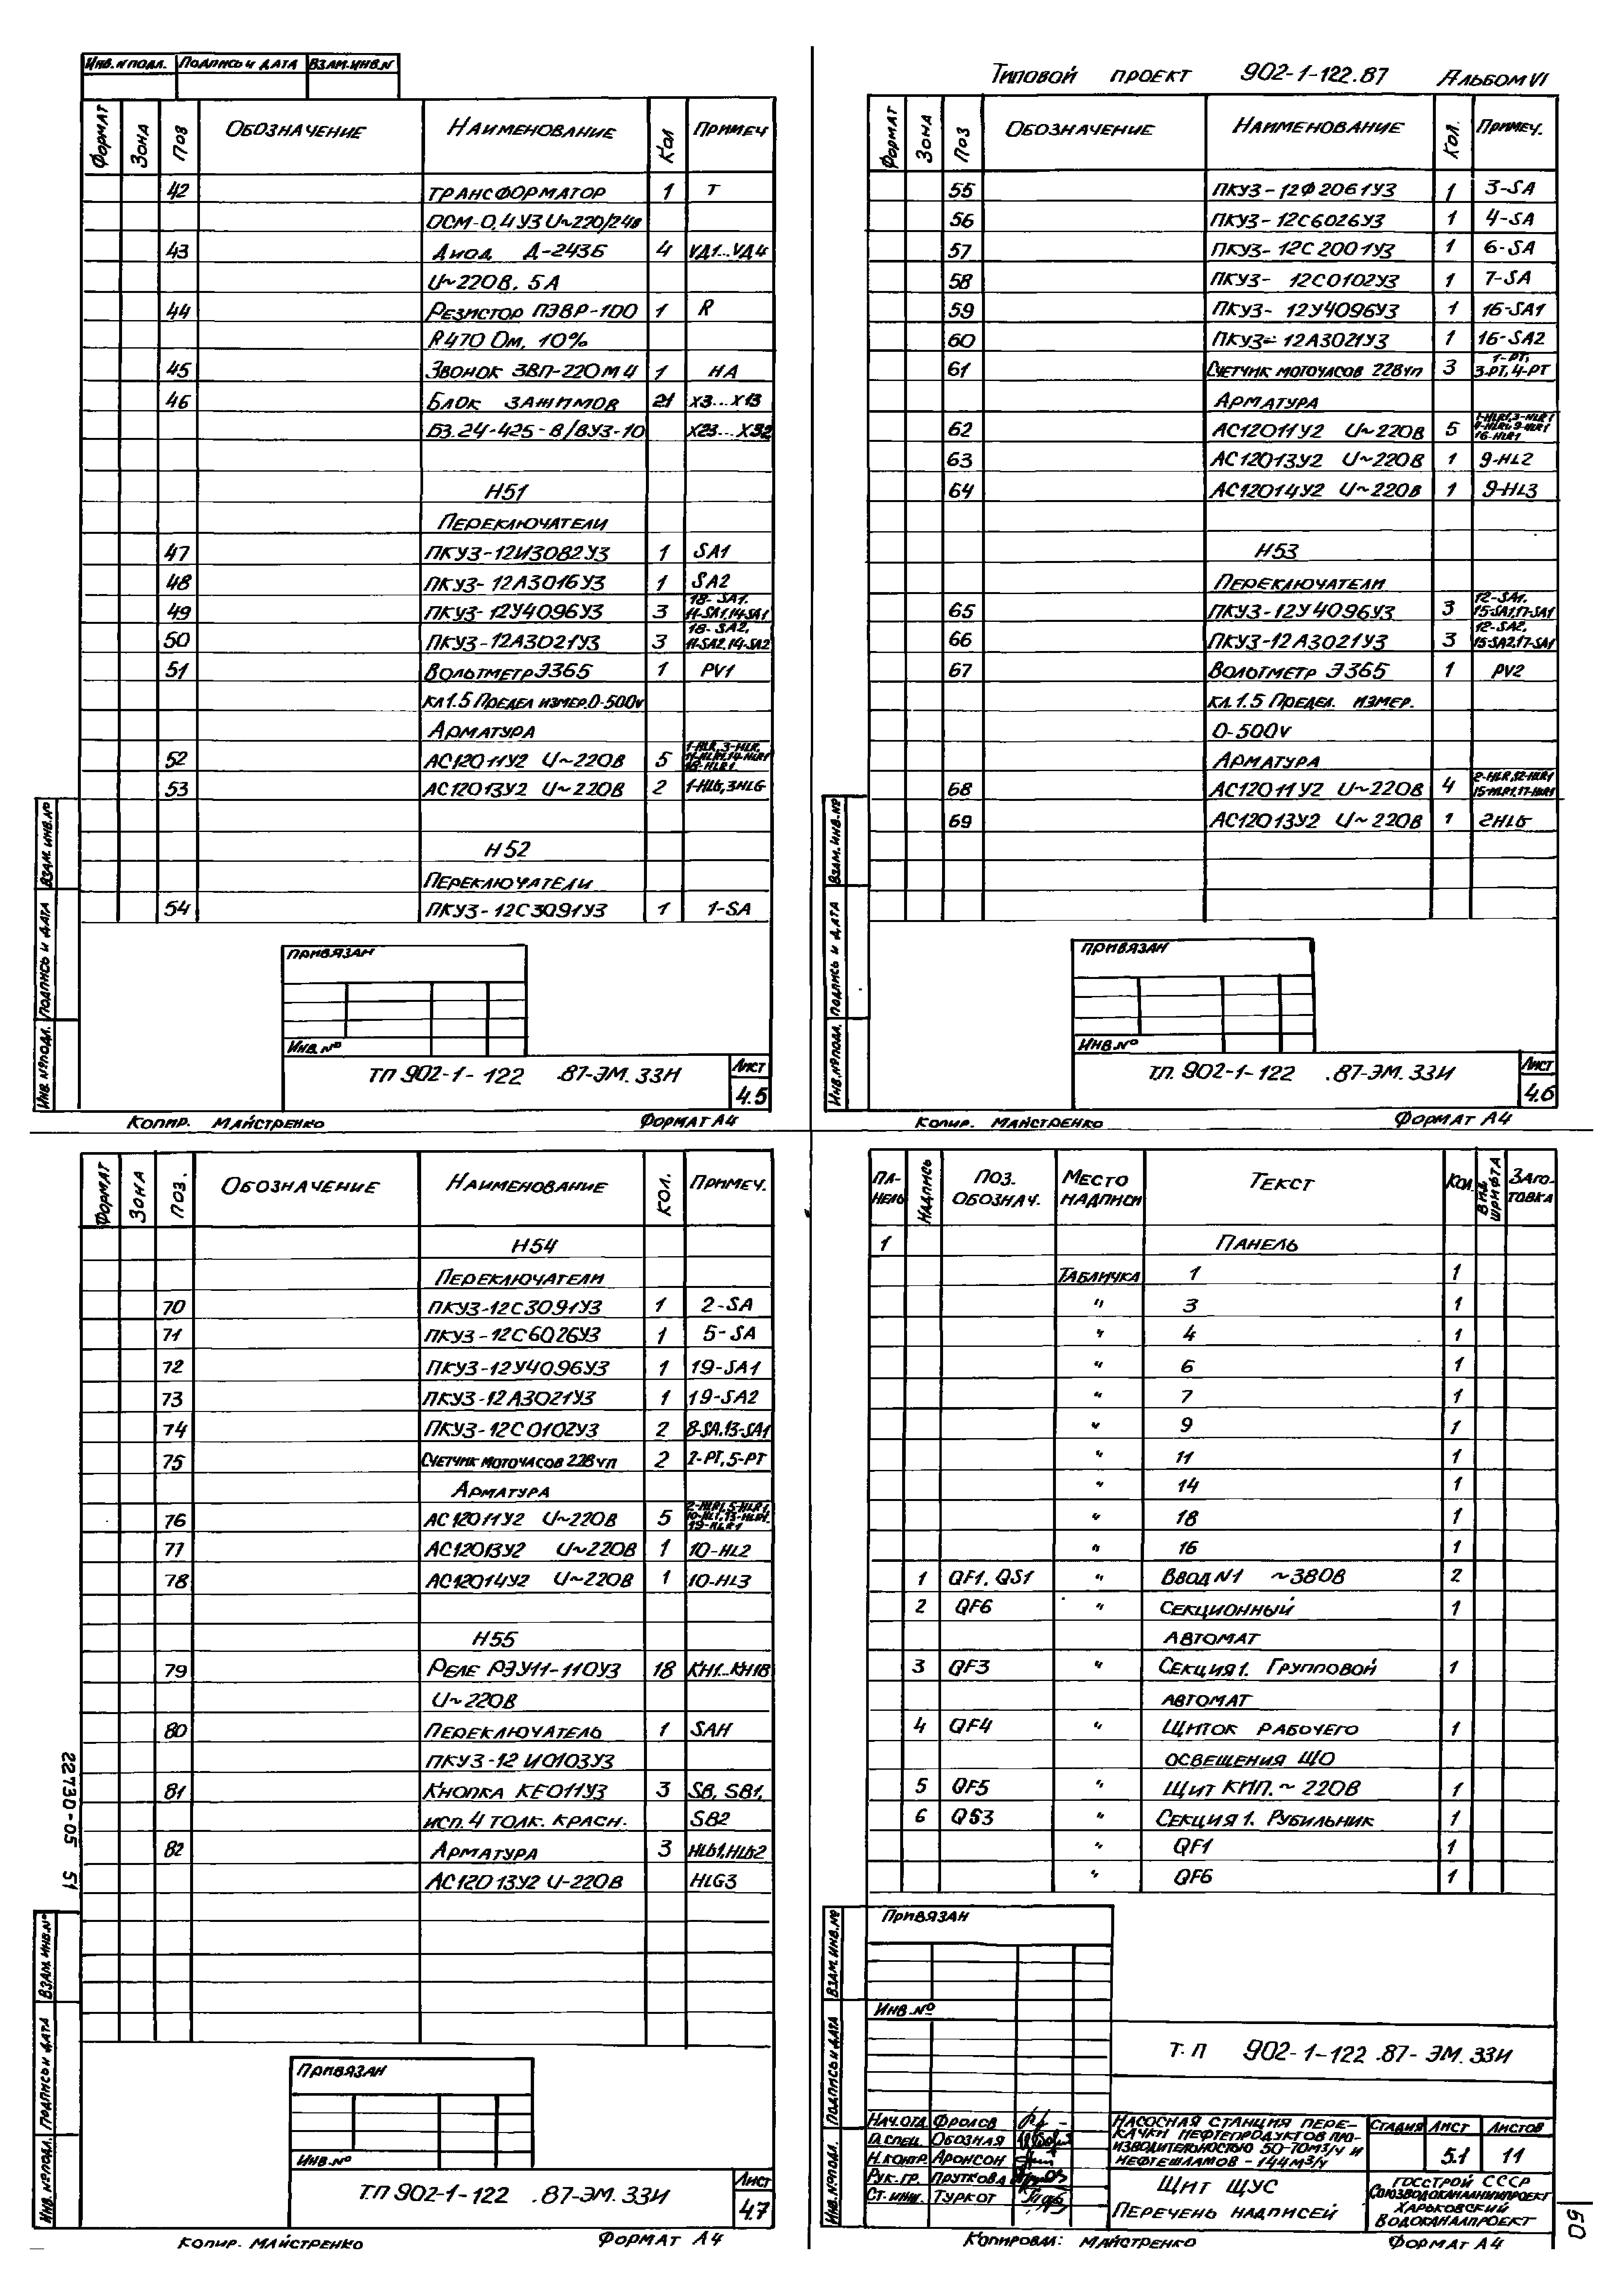 Инв. № подл. Подпись и дата Взам. инв. №
Формат Зона Поз Обозначение Наименование Кол Примеч
42 Трансформатор 1 Т
ОСМ-0,4 У3 U~220/24в
43 Диод Д-243Б 4 VД1...VД4
U~220В. 5А
44 Резистор ПЭВР-100 1 R
R470 Ом, 10%
45 Звонок ЗВП-220М4 1 НА
46 Блок зажимов 21 Х3...Х13
БЗ.24-425-В/ВУ3-10 Х23...Х32
Н51
Переключатели
47 ПКУ3-12И3082У3 1 SA1
48 ПКУ3-12А3016У3 1 SA2
49 ПКУ3-12У4096У3 3 18-SA1.
11-SA1,14-SA1
50 ПКУ3-12А3021У3 3 18-SA2,
11-SA2,14-SA2
51 Вольтметр Э365 1 PV1
кл 1.5 Предел измер. 0-500v
Арматура
52 АС12011У2 U~220В 5 1-HLR, 3-HLR,
11-HLR1,14-HLR1
18-HLR1
53 АС12013У2 U~220В 2 1-HLG, 3HLG
Н52
Переключатели
54 ПКУ3-12С3091У3 1 1-SA
Привязан
Инв. №
ТП 902-1-122 .87-ЭМ.33И
Лист
4.5
Инв. № подл. Подпись и дата Взам. инв. №
Копир. Майстренко Формат А4
Типовой проект 902-1-122.87 Альбом VI
Формат Зона Поз Обозначение Наименование Кол. Примеч.
55 ПКУ3-12Ф2061У3 1 3-SA
56 ПКУ3-12С6026У3 1 4-SA
57 ПКУ3-12С2001У3 1 6-SA
58 ПКУ3-12С0102У3 1 7-SA
59 ПКУ3-12У4096У3 1 16-SA1
60 ПКУ3-12А3021У3 1 16-SA2
61 Счетчик моточасов 228чп 3 1-PT,
3-PT, 4-PT
Арматура
62 АС12011У2 U~220В 5 1-HLR1, 3-HLR1
4-HLR1, 9-HLR1
16-HLR1
63 АС12013У2 U~220В 1 9-HL2
64 АС12014У2 U~220В 1 9-HL3
Н53
Переключатели
65 ПКУ3-12У4096У3 3 12-SA1.
15-SA1,17-SA1
66 ПКУ3-12А3021У3 3 12-SA2.
15-SA2,17-SA1
67 Вольтметр Э365 1 PV2
кл. 1.5 Предел. измер.
0-500v
Арматура
68 АС12011У2 U~220В 4 2-HLR,12-HLR1
15-HLR1,17-HLR1
69 АС12013У2 U~220В 1 2HLG
Привязан
Инв. №
ТП. 902-1-122 .87-ЭМ.33И
Лист
4.6
Инв. № подл. Подпись и дата Взам. инв. №
Копир. Майстренко Формат А4
Формат Зона Поз. Обозначение Наименование Кол. Примеч.
Н54
Переключатели
70 ПКУ3-12С3091У3 1 2-SA
71 ПКУ3-12С6026У3 1 5-SA
72 ПКУ3-12У4096У3 1 19-SA1
73 ПКУ3-12А3021У3 1 19-SA2
74 ПКУ3-12С0102У3 2 8-SA.13-SA1
75 Счетчик моточасов 228чп 2 2-PT, 5-PT
Арматура
76 АС12011У2 U~220В 5 2-HLR1, 5-HLR1,
10-HL1, 13-HLR1.
19-HLR1
77 АС12013У2 U~220В 1 10-HL2
78 АС12014У2 U~220В 1 10-HL3
Н55
79 Реле РЭУ11-110У3 18 КН1...КН18
U~220В
80 Переключатель 1 SAH
ПКУ3-12 И0103У3
81 Кнопка КЕ011У3 3 SB, SB1,
исп. 4 толк. красн. SB2
82 Арматура 3 HLG1,HLG2
АС12013У2 U-220В HLG3
22730-05 51
Привязан
Инв. №
ТП 902-1-122 .87-ЭМ.33И
Лист
4.7
Инв. № подл. Подпись и дата Взам. инв. №
Копир. Майстренко Формат А4
Панель Надпись Поз. обознач. Место надписи Текст Кол. Вид шрифта Заготовка
1 Панель
Табличка 1 1
" 3 1
" 4 1
" 6 1
" 7 1
" 9 1
" 11 1
" 14 1
" 18 1
" 16 1
1 QF1, QS1 " Ввод №1 ~380В 2
2 QF6 " Секционный 1
автомат
3 QF3 " Секция 1. Групповой 1
автомат
4 QF4 " Щиток рабочего 1
освещения ЩО
5 QF5 " Щит КИП. ~ 220В 1
6 QS3 " Секция 1. Рубильник 1
" QF1 1
" QF6 1
Привязан
Инв. №
Т.П 902-1-122 .87-ЭМ.33И
Нач.отд. Фролов
Гл.спец. Обозная
Н.контр. Аронсон
Рук.гр. Пруткова
Ст.инж. Туркот
Насосная станция пере-
качки нефтепродуктов про-
изводительностью 50-70м3/ч и
нефтешламов - 144м3/ч
Стадия Лист Листов
5.1 11
Щит ЩУС
Перечень надписей
Госстрой СССР
Союзводоканалниипроект
Харьковский
Водоканалпроект
Инв. № подл. Подпись и дата Взам. инв. №
50
Копировал: Майстренко Формат А4